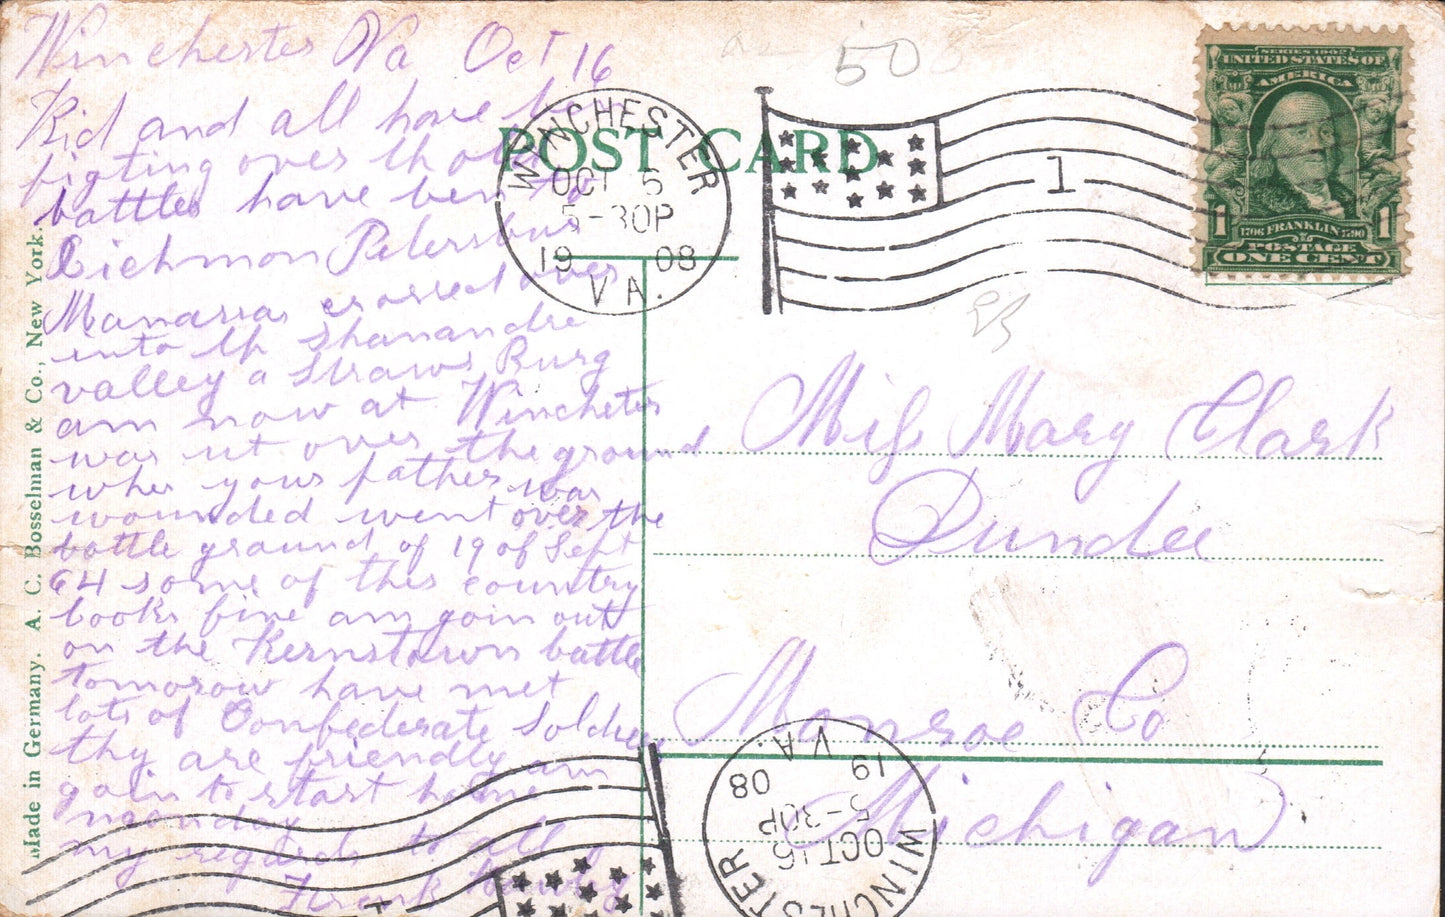 Winchester Va Oct 16
Kid and all have ben
figting over th old
battles have ben to
Richmon Petersburg
Manassas crossed over
into th Shanandre
valley a Straws Burg
am now at Winchester
was ut over the ground
wher your father was
wounded went over the
battle ground of 19 of Sept
64 some of this country
looks fine am goin out
on the Kernstown battle
tomorow have met
lots of Confederate Soldier
thy are friendly am
goin to start home
monday
my regards to all
Frank
50
POST CARD
WINCHESTER
OCT 6
5-30P
19 08
VA.
1
SERIES 1902
UNITED STATES OF
AMERICA
1 1
1706 FRANKLIN 1790
POSTAGE
ONE CENT
Miss Mary Clark
Dundee
Monroe Co
Michigan
WINCHESTER
OCT 16
5-30P
19 08
VA.
Made in Germany. A. C. Bosselman & Co., New York.